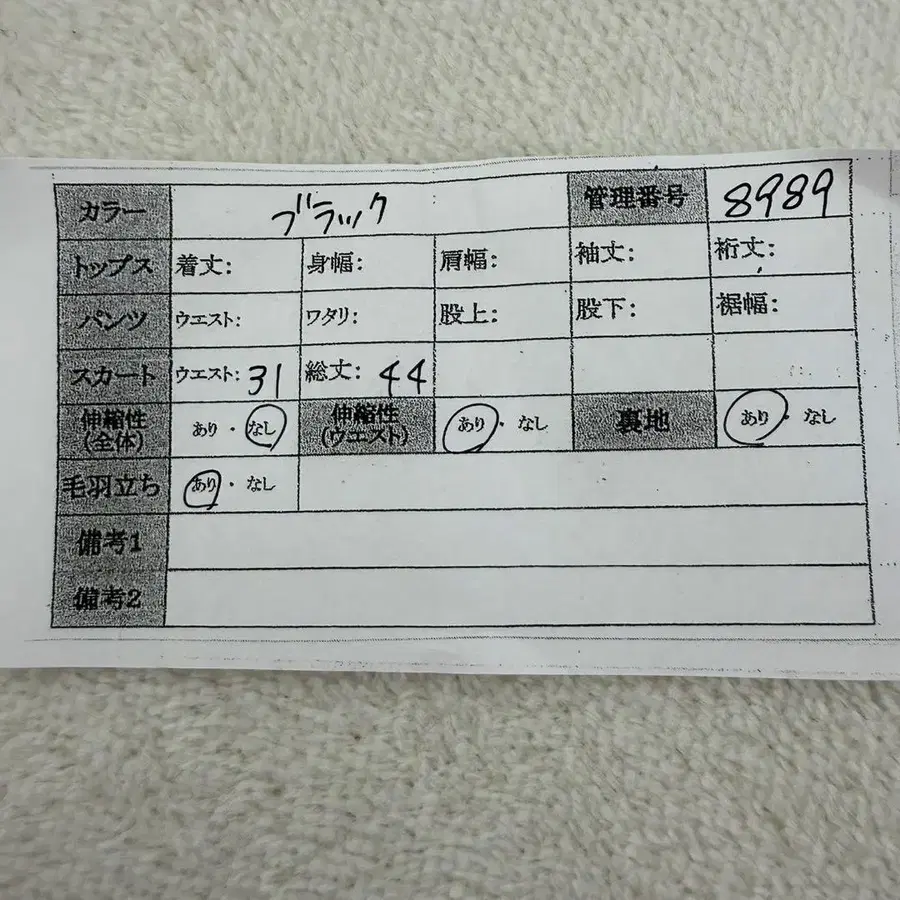 カラー ブラック 管理番号 8989
トップス 着丈: 身幅: 肩幅: 袖丈: 裄丈:
パンツ ウエスト: ワタリ: 股上: 股下: 裾幅:
スカート ウエスト: 31 総丈: 44
伸縮性(全体) あり・なし 伸縮性(ウエスト) あり・なし 裏地 あり・なし
毛羽立ち あり・なし
備考1
備考2